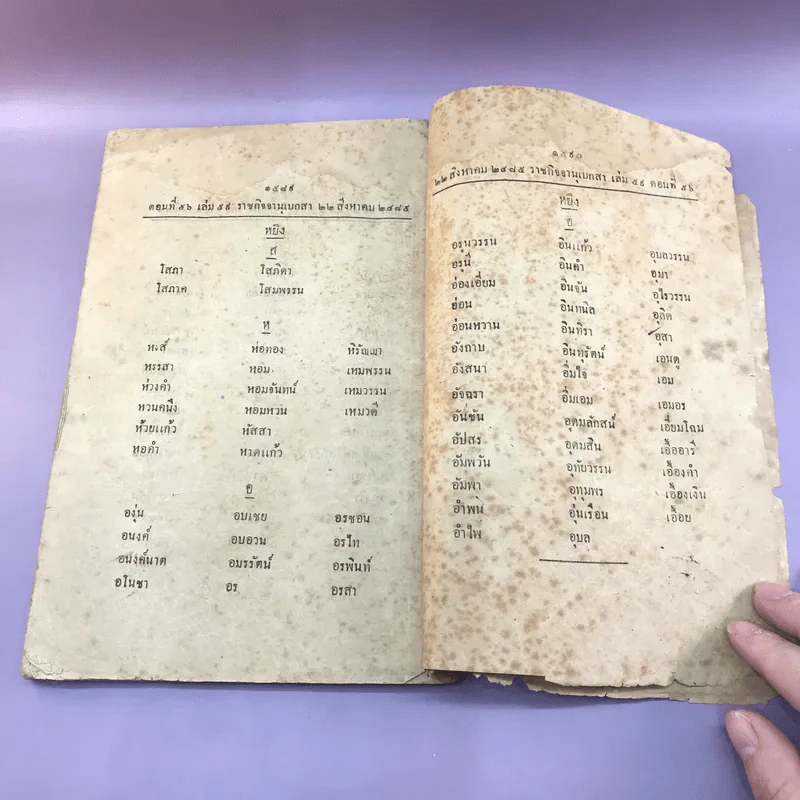 ๑๕๘๙
ตอนที่ ๕๖ เล่ม ๕๙ ราชกิจจานุเบกสา ๒๒ สิงหาคม ๒๔๘๕
หยิง
ส
โสภา โสภิตา
โสภาค โสมพรรน
ห
หงส์ ห่อทอง หิรัญญา
หะรสา หอม เหมพรรน
ห่วงคำ หอมจันทน์ เหมวรรน
หวนคนึง หอมหวน เหมวดี
ห้วยแก้ว หัสสา
หอคำ หาดแก้ว
อ
องุ่น อบเชย อรชอน
อนงค์ อบอวน อรไท
อนงค์นาต อมรรัตน์ อรพินท์
อโนชา อร อรสา
๑๕๙๐
๒๒ สิงหาคม ๒๔๘๕ ราชกิจจานุเบกสา เล่ม ๕๙ ตอนที่ ๕๖
หยิง
อ
อรุนวรรน อินแก้ว อุบลวรรน
อรุนี อินคำ อุมา
อ่องเอี่ยม อินจัน อุไรวรรน
อ่อน อินทนิล อุลิต
อ่อนหวาน อินทิรา อุสา
อังกาบ อินทุรัตน์ เอนดู
อังสนา อิ่มใจ เอม
อัจฉรา อิ่มเอม เอมอร
อันชัน อุดมลักสน์ เอี่ยมโฉม
อัปสร อุดมสิน เอื้ออารี
อัมพวัน อุทัยวรรน เอื้องคำ
อัมพา อุทุมพร เอื้องเงิน
อำพน อุ่นเรือน เอื้อย
อำไพ อุบล